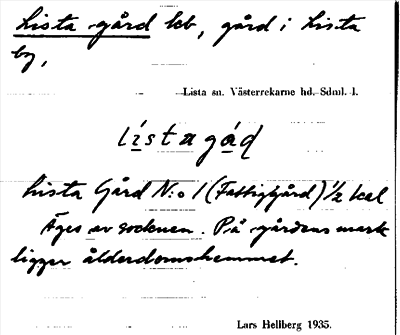 Lista gård lcb, gård i Lista
by,
Lista sn. Västerrekarne hd. Sdml. l.
lista gåd
Lista Gård N:o 1 (Fattiggård) 1/2 kcal
Äges av socknen. På gårdens mark
ligger ålderdomshemmet.
Lars Hellberg 1935.